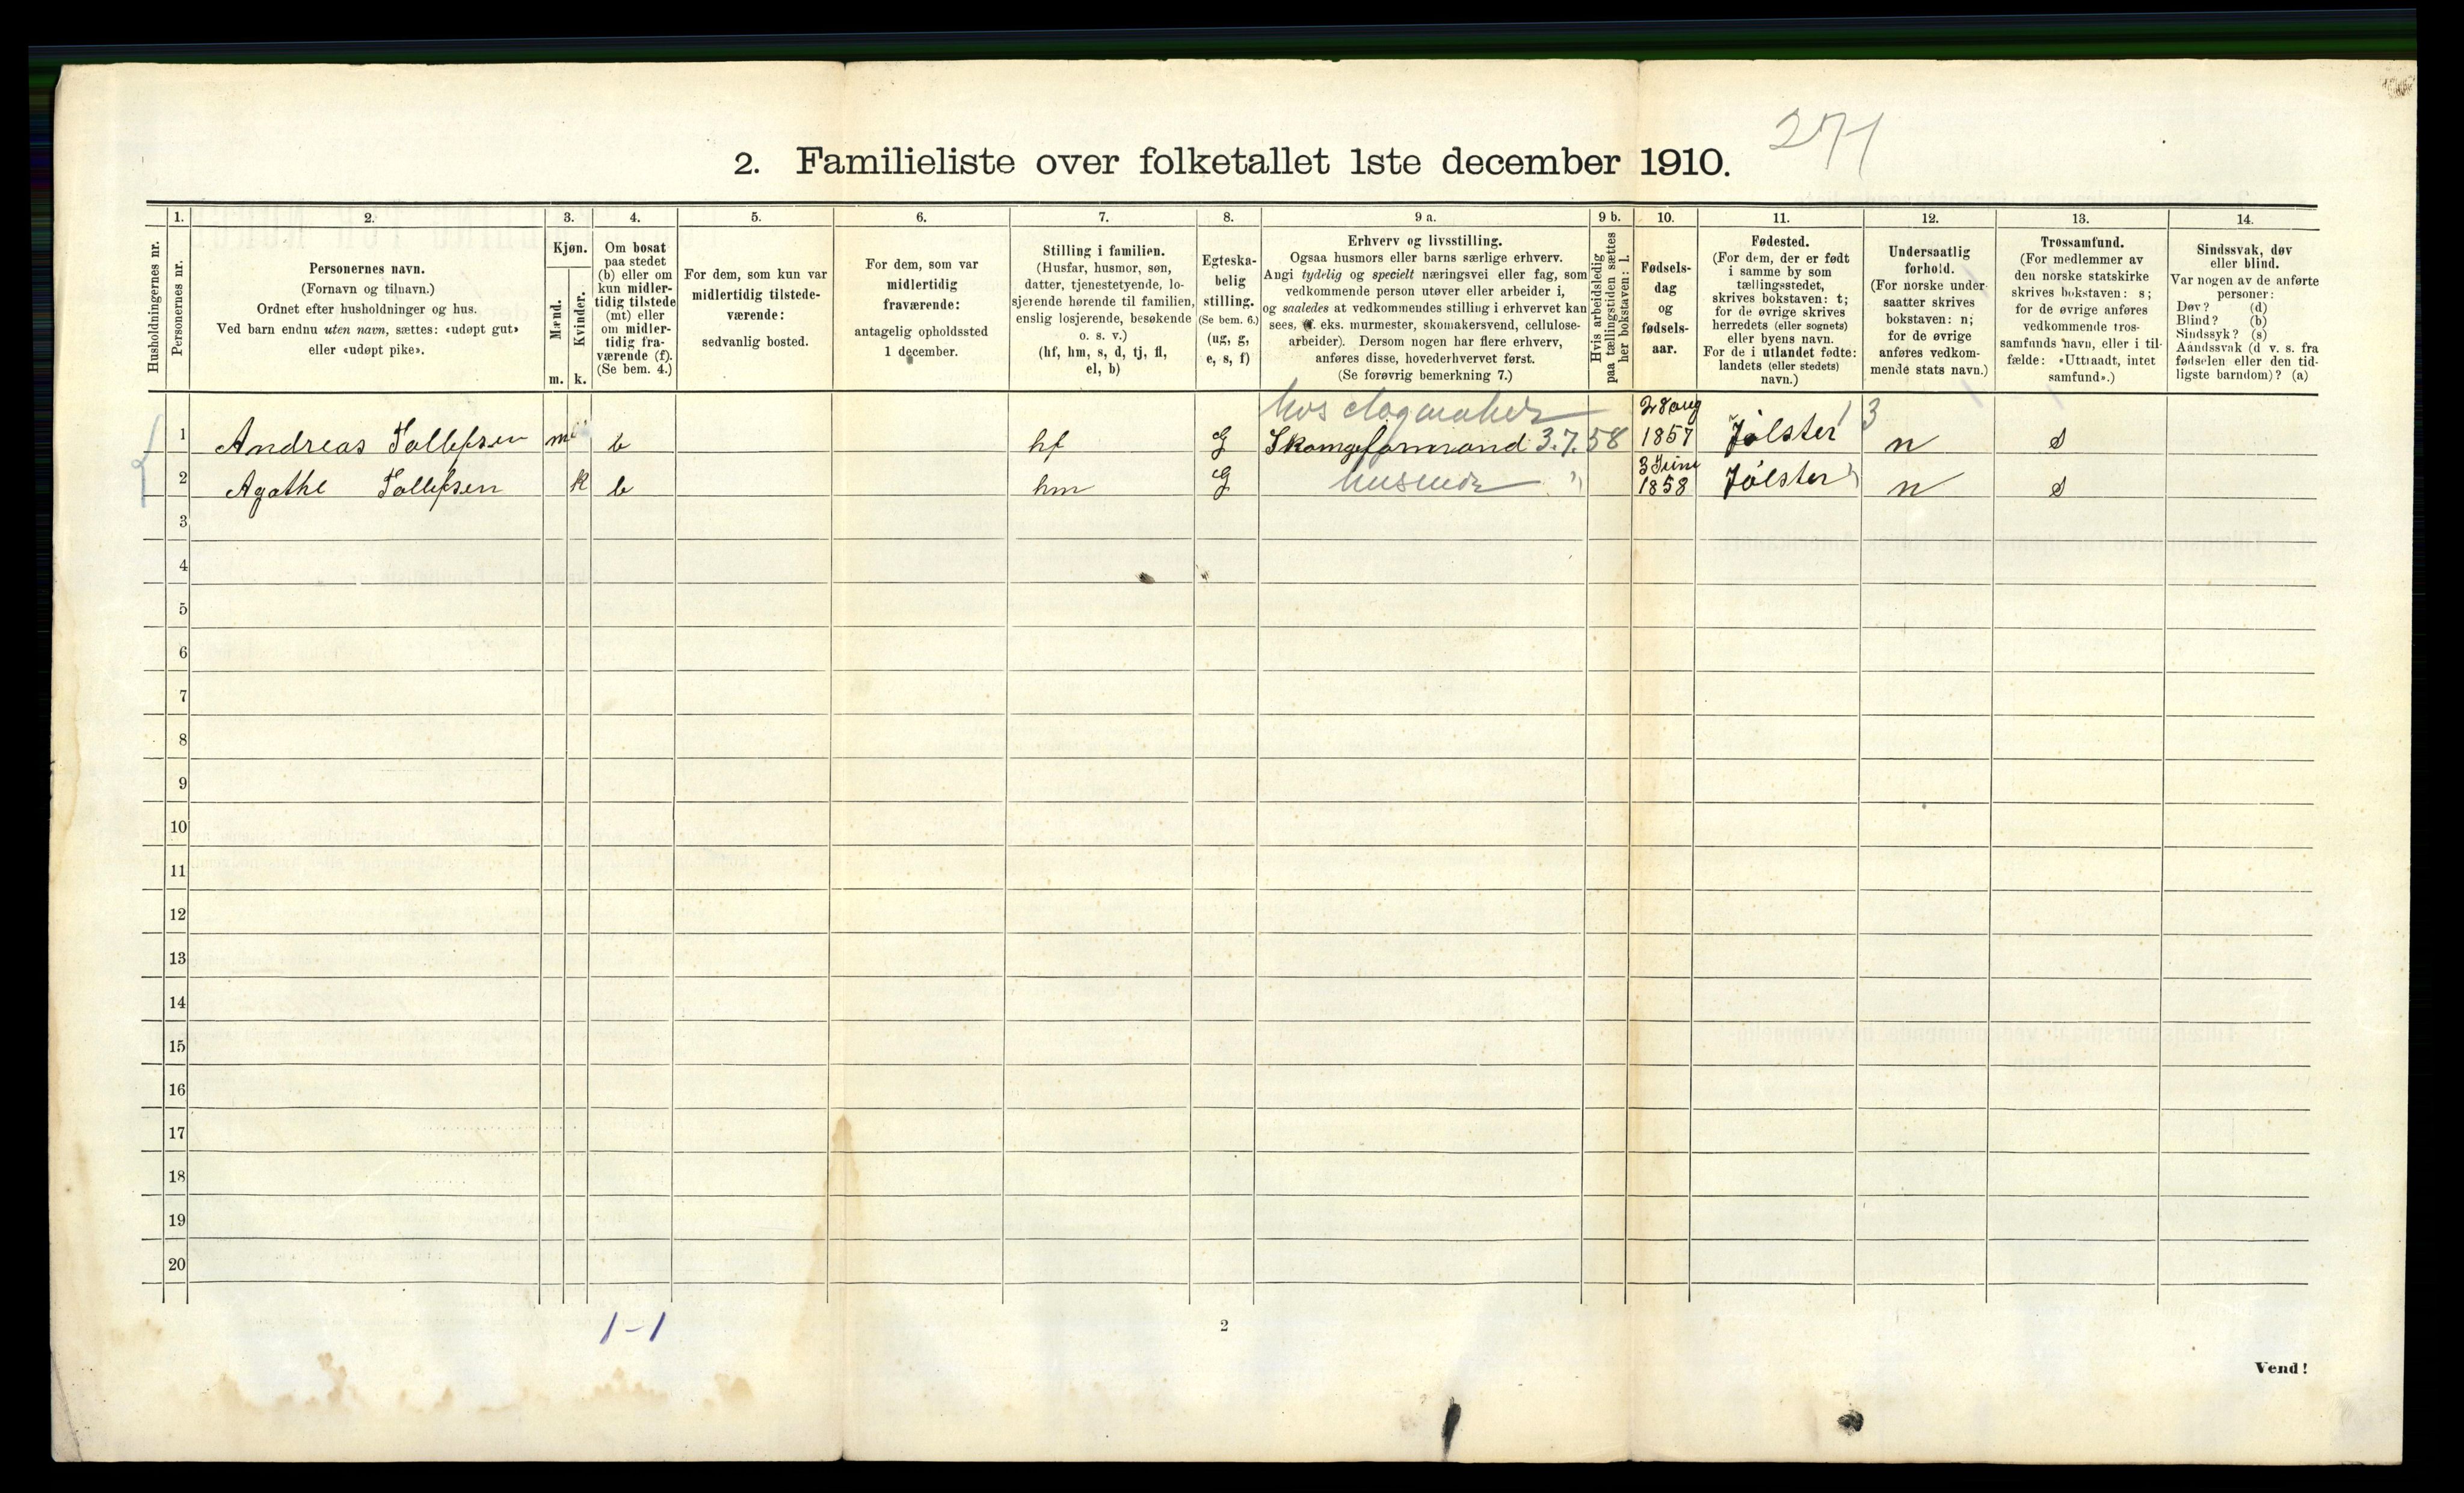 271
2. Familieliste over folketallet 1ste december 1910.
Husholdningernes nr.
1.
Personernes nr.
2.
Personernes navn.
(Fornavn og tilnavn.)
Ordnet efter husholdninger og hus.
Ved barn endnu uten navn, sættes: «udøpt gut»
eller «udøpt pike».
3.
Kjøn.
Mænd.
Kvinder.
m.
k.
4.
Om bosat
paa stedet
(b) eller om
kun midler-
tidig tilstede
(mt) eller
om midler-
tidig fra-
værende (f).
(Se bem. 4.)
5.
For dem, som kun var
midlertidig tilstede-
værende:
sedvanlig bosted.
6.
For dem, som var
midlertidig
fraværende:
antagelig opholdssted
1 december.
7.
Stilling i familien.
(Husfar, husmor, søn,
datter, tjenestetyende, lo-
sjerende hørende til familien,
enslig losjerende, besøkende
o. s. v.)
(hf, hm, s, d, tj, fl,
el, b)
8.
Egteska-
belig
stilling.
(Se bem. 6.)
(ug, g,
e, s, f)
9 a.
Erhverv og livsstilling.
Ogsaa husmors eller barns særlige erhverv.
Angi tydelig og specielt næringsvei eller fag, som
vedkommende person utøver eller arbeider i,
og saaledes at vedkommendes stilling i erhvervet kan
sees, f. eks. murmester, skomakersvend, cellulose-
arbeider). Dersom nogen har flere erhverv,
anføres disse, hovederhvervet først.
(Se forøvrig bemerkning 7.)
9 b.
Hvis arbeidsledig
paa tællingstiden sættes
her bokstaven: l.
10.
Fødsels-
dag
og
fødsels-
aar.
11.
Fødested.
(For dem, der er født
i samme by som
tællingsstedet,
skrives bokstaven: t;
for de øvrige skrives
herredets (eller sognets)
eller byens navn.
For de i utlandet fødte:
landets (eller stedets)
navn.)
12.
Undersaatlig
forhold.
(For norske under-
saatter skrives
bokstaven: n;
for de øvrige
anføres vedkom-
mende stats navn.)
13.
Trossamfund.
(For medlemmer av
den norske statskirke
skrives bokstaven: s;
for de øvrige anføres
vedkommende tros-
samfunds navn, eller i til-
fælde: «Uttraadt, intet
samfund».)
14.
Sindssvak, døv
eller blind.
Var nogen av de anførte
personer:
Døv? (d)
Blind? (b)
Sindssyk? (s)
Aandssvak (d v. s. fra
fødselen eller den tid-
ligste barndom)? (a)
hos
1 Andreas Tollefsen m b hf G 3.7.58 28 aug 1857 Jølster 13 n s
2 Agathe Tollefsen k b hm G 3 Juni 1858 Jølster n s
3
4
5
6
7
8
9
10
11
12
13
14
15
16
17
18
19
20
1-1
2
Vend!